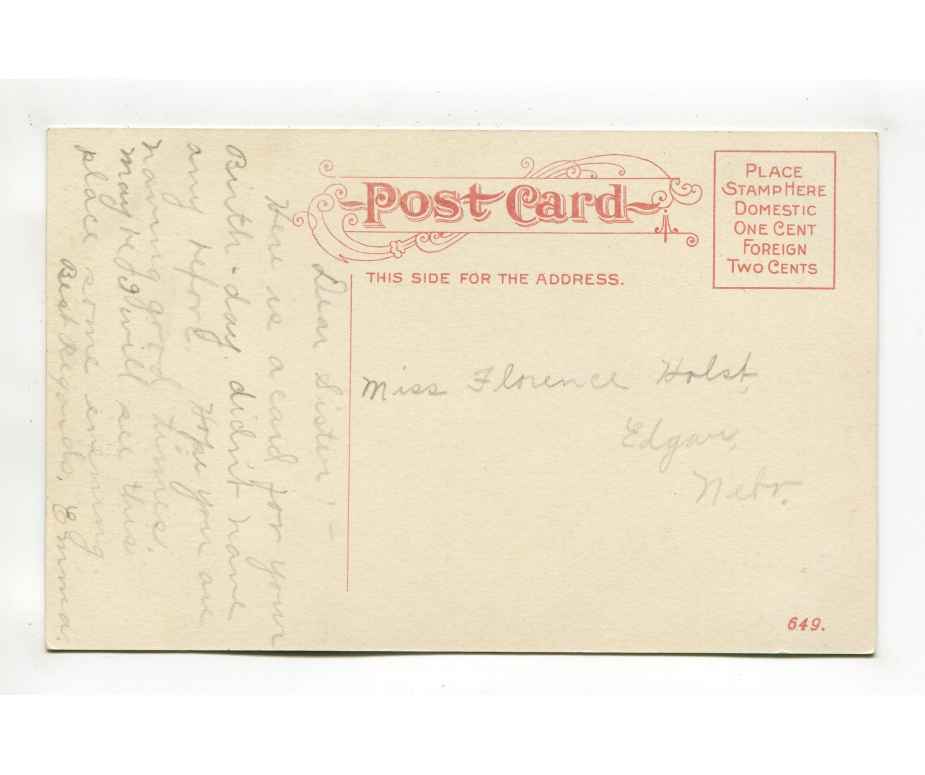 Post Card
THIS SIDE FOR THE ADDRESS.
PLACE
STAMP HERE
DOMESTIC
ONE CENT
FOREIGN
TWO CENTS
Dear Sister:-
Here is a card for your
Birth-day didn't have
any before. Hope you are
having good times.
maybe I will see this
place some evening
Best Regards, Emma.
Miss Florence Holst,
Edgar,
Nebr.
649.